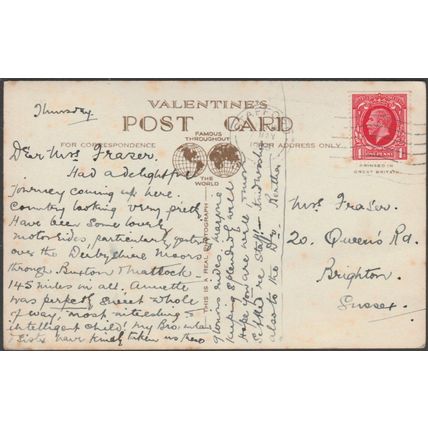 Thursday
VALENTINE'S
POST CARD
FAMOUS
THROUGHOUT
THE
WORLD
FOR CORRESPONDENCE
FOR ADDRESS ONLY
PRINTED IN
GREAT BRITAIN
THIS IS A REAL PHOTOGRAPH
Dear Mrs Fraser.
Had a delightful
journey coming up here.
Country looking very pretty
Have been some lovely
motor rides, particularly
over the Derbyshire Moors
through Buxton & Matlock.
145 miles in all. Annette
was perfectly sweet whole
of way, most interesting &
intelligent child! My Bro. in law
& Sister have kindly taken us
glorious rides. Marjorie
keeping splendidly well
Hope you are well &
settled re Staff – Kind regards
also to the Dr.
Mrs Fraser.
20. Queen's Rd.
Brighton
Sussex.
ONE PENNY